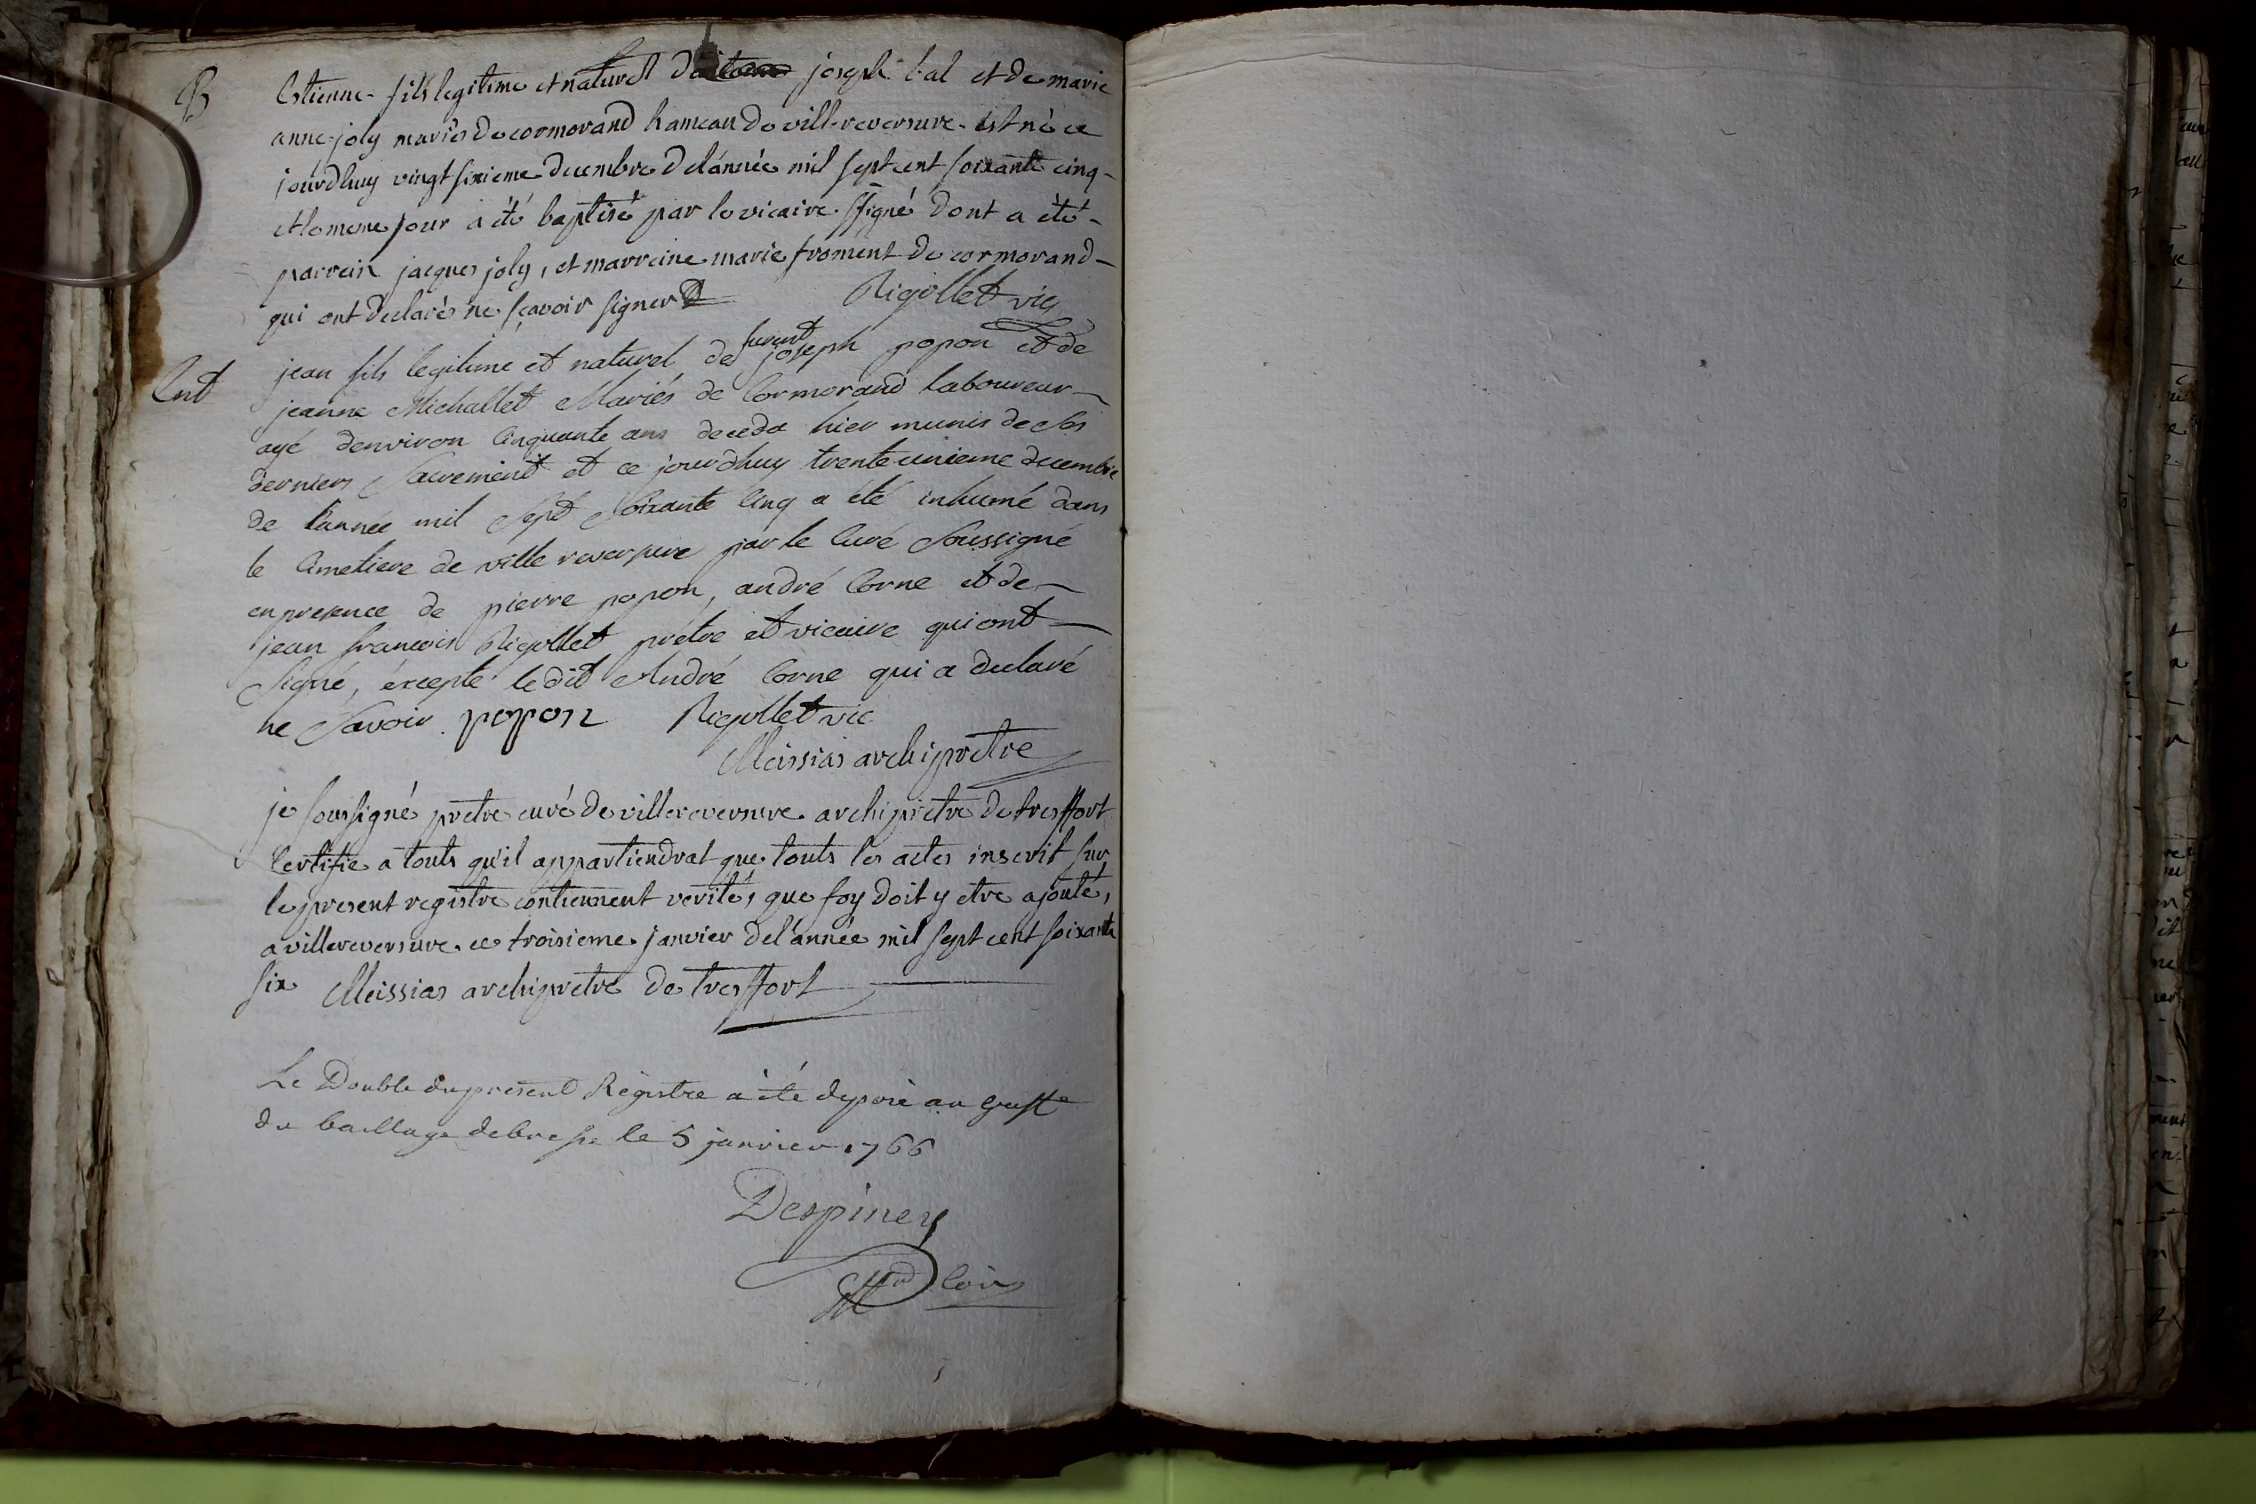 B
Estienne fils legitime et naturel de joseph bal et de marie
anne joly mariés de cormorand hameau de villereversure est né ce
jourdhuy vingt sixieme decembre de l'année mil sept cent soixante cinq
et le meme jour a été baptisé par le vicaire ssigné dont a été
parrein jacques joly, et marreine marie froment de cormorand
qui ont declarés ne sçavoir signer
Rigollet vic
Ent
jean fils legitime et naturel de furent joseph popon et de
jeanne Michallet Mariés de Cormorand laboureur
agé denviron Cinquante ans deceda hier munis de Ses
derniers Sacrement et ce jourdhuy trente unieme decembre
de l'année mil Sept Soixante Cinq a été inhumé dans
le Cimetiere de ville reversure par le Curé Soussigné
en presence de pierre popon, andré Corne et de
jean francois Rigollet prétre et vicaire qui ont
Signé, éxcepté le dit André Corne qui a declaré
ne Savoir popon Rigollet vic
Meissias archipretre
je soussigné pretre curé de villereversure archipretre de tresffort
Certifie a touts qu'il appartiendrat que touts les actes inscrit sur
le present registre contiennent verités que foy doit y etre ajouté,
a villereversure ce troisieme janvier de l'année mil sept cent soixante
six Meissias archipretre de tresffort
Le Double du present Régistre a été déposé au greffe
du baillage de bresse le 5 janvier 1766
Despiney